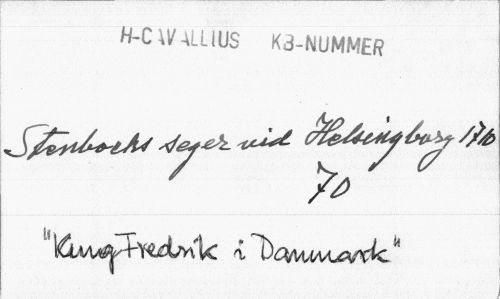 H-CAVALLIUS KB-NUMMER
Stenbocks seger vid Helsingborg 1710
70
"Kung Fredrik i Danmark"